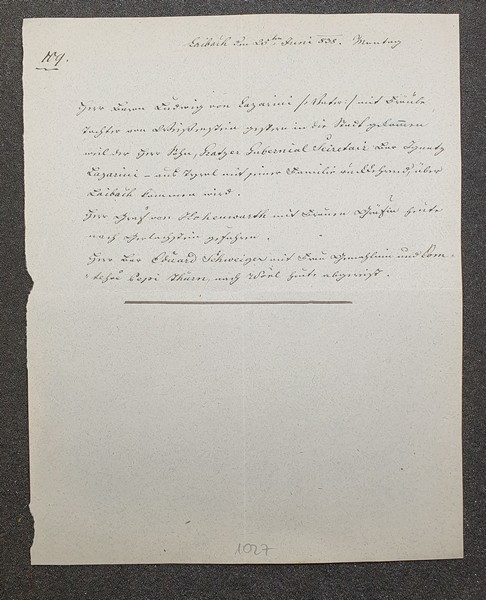 109.
Laibach den ten Juni 838. Montag
Herr Baron Ludwig von Lazarini /:Vater:/ mit Fräule
Tochter von gestern in die Stadt gekommen
weil der Herr Sohn, Gubernial Secretair Bar Ignatz
Lazarini – aus Tyrol mit seiner Familie über
Laibach kommen wird.
Herr Graf von Hohenwarth mit Frauen Gräfin heute
nach Gerlachstein gefahren.
Herr Bar Eduard Schweiger mit Frau Gemahlin und Com-
Thurn, nach heute abgereist.
1027